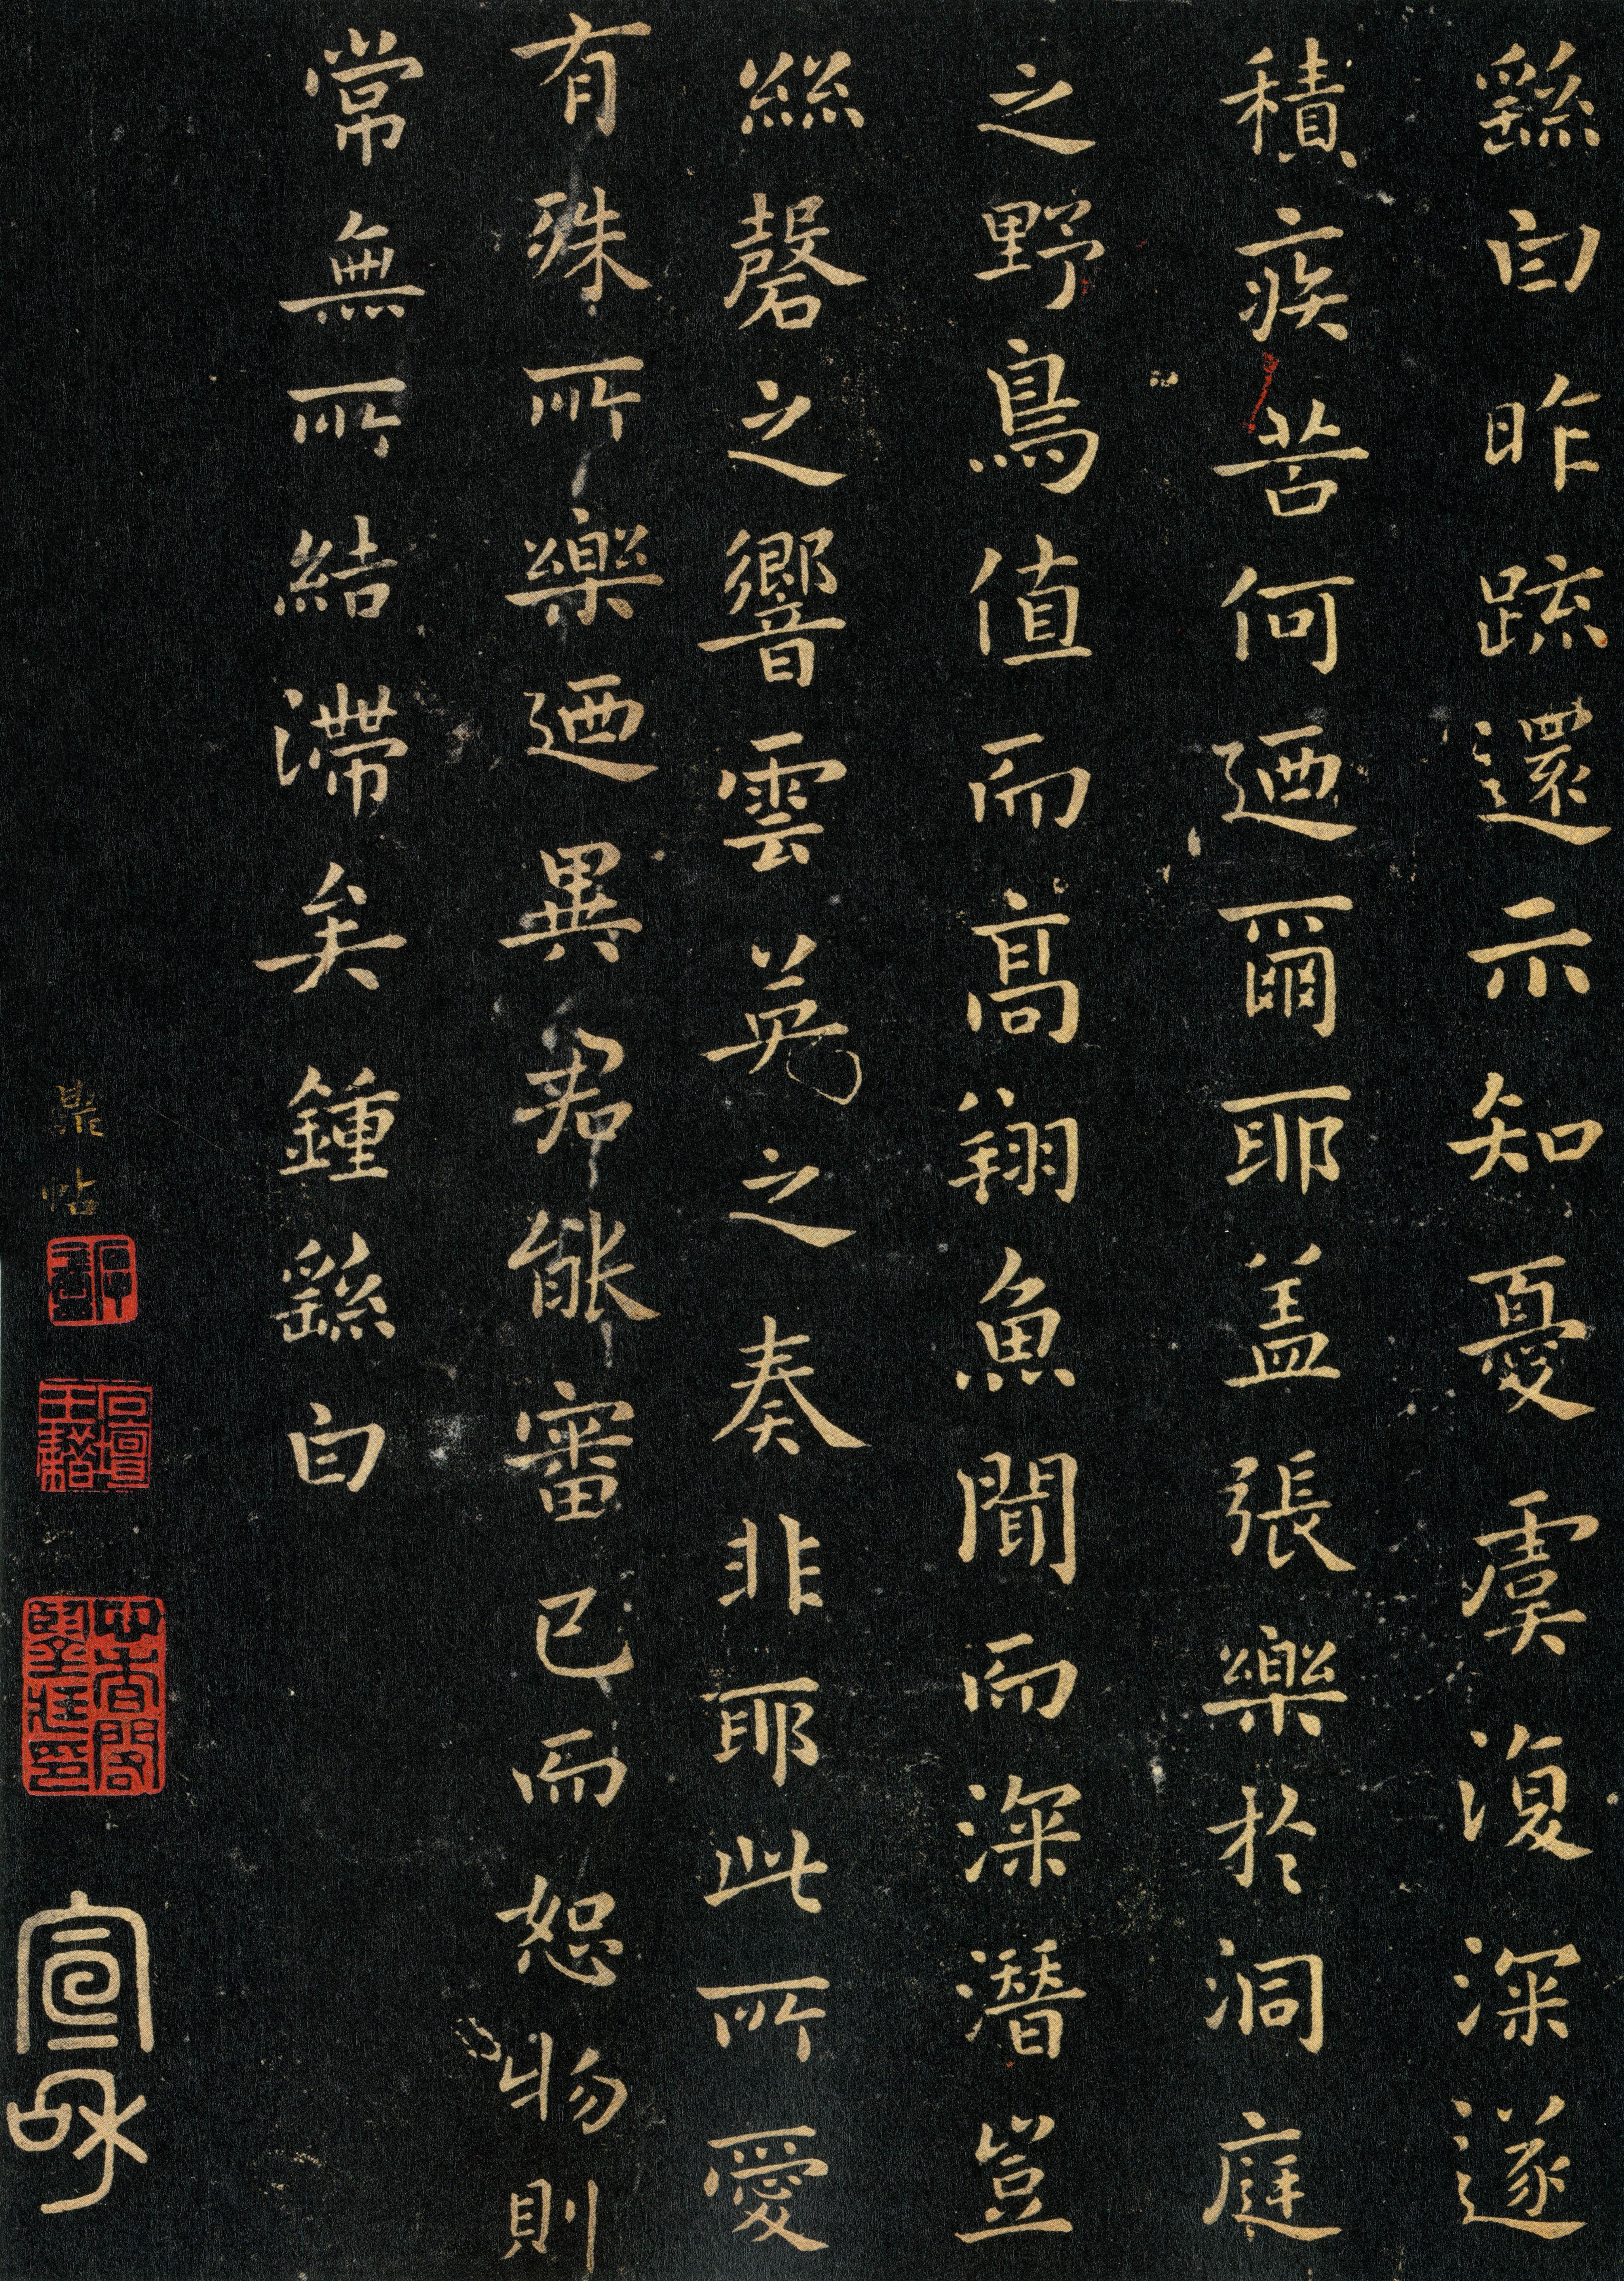 繇白昨疏還示知憂虞復深遂
積疾苦何迺爾耶盖張樂於洞庭
之野鳥值而高翔魚聞而深潛豈
絲磬之響雲英之奏非耶此所愛
有殊所樂迺異君能審已而恕物則
常無所結滯矣鍾繇白
鼎帖
宣和